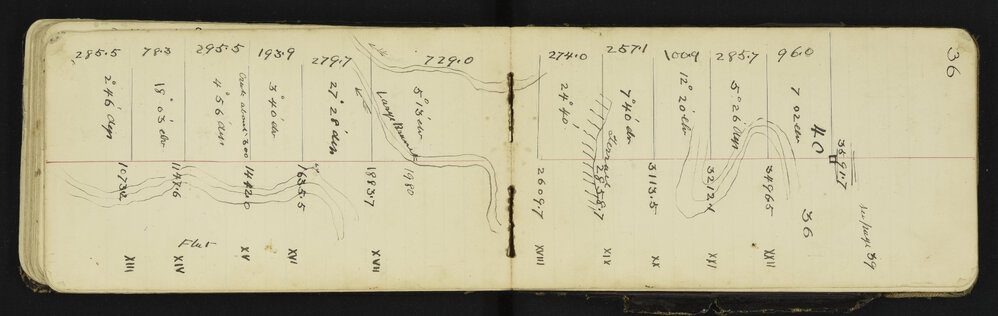 36
285.5 78.3 295.5 193.9 279.7 729.0 274.0 257.1 100.9 285.7 96.0
2° 46' dep
18° 03' elev
4° 56' dep
Creek about 300
3° 40' elev
27° 28' dep
Large Burn
5° 13' elev
24° 40'
7° 40' elev
Terrace
12° 20' elev
5° 26' dep
7 02 elev
40
3591.7
1073.2 1147.6 1442.0 1635.5 1883.7 1980 2609.7 2858.7 3113.5 3212.1 3496.5
36
see page 39
Flat
XIII XIV XV XVI XVII XVIII XIX XX XXI XXII